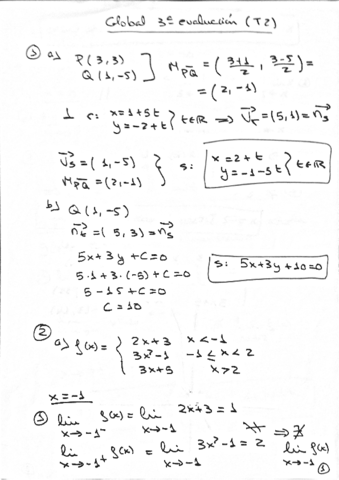 Global 3ª evaluación (T2)
① a) P(3,3)
Q(1,-5) ] M_PQ = (3+1/2, 3-5/2) =
= (2,-1)
⊥ r: x=1+5t
y=-2+t } t∈ℝ ⇒ v⃗r=(5,1)=n⃗s
v⃗s=(1,-5)
M_PQ=(2,-1) } s: x=2+t
y=-1-5t } t∈ℝ
b) Q(1,-5)
n⃗r=(5,3)=n⃗s
5x+3y+C=0
5·1+3·(-5)+C=0
s: 5x+3y+10=0
5-15+C=0
C=10
② a) f(x)= { 2x+3 x<-1
3x²-1 -1≤x<2
3x+5 x>2
x=-1
① lim x→-1⁻ f(x) = lim x→-1 2x+3 = 1
lim x→-1⁺ f(x) = lim x→-1 3x²-1 = 2 ⇒ ∄ lim x→-1 f(x)
①